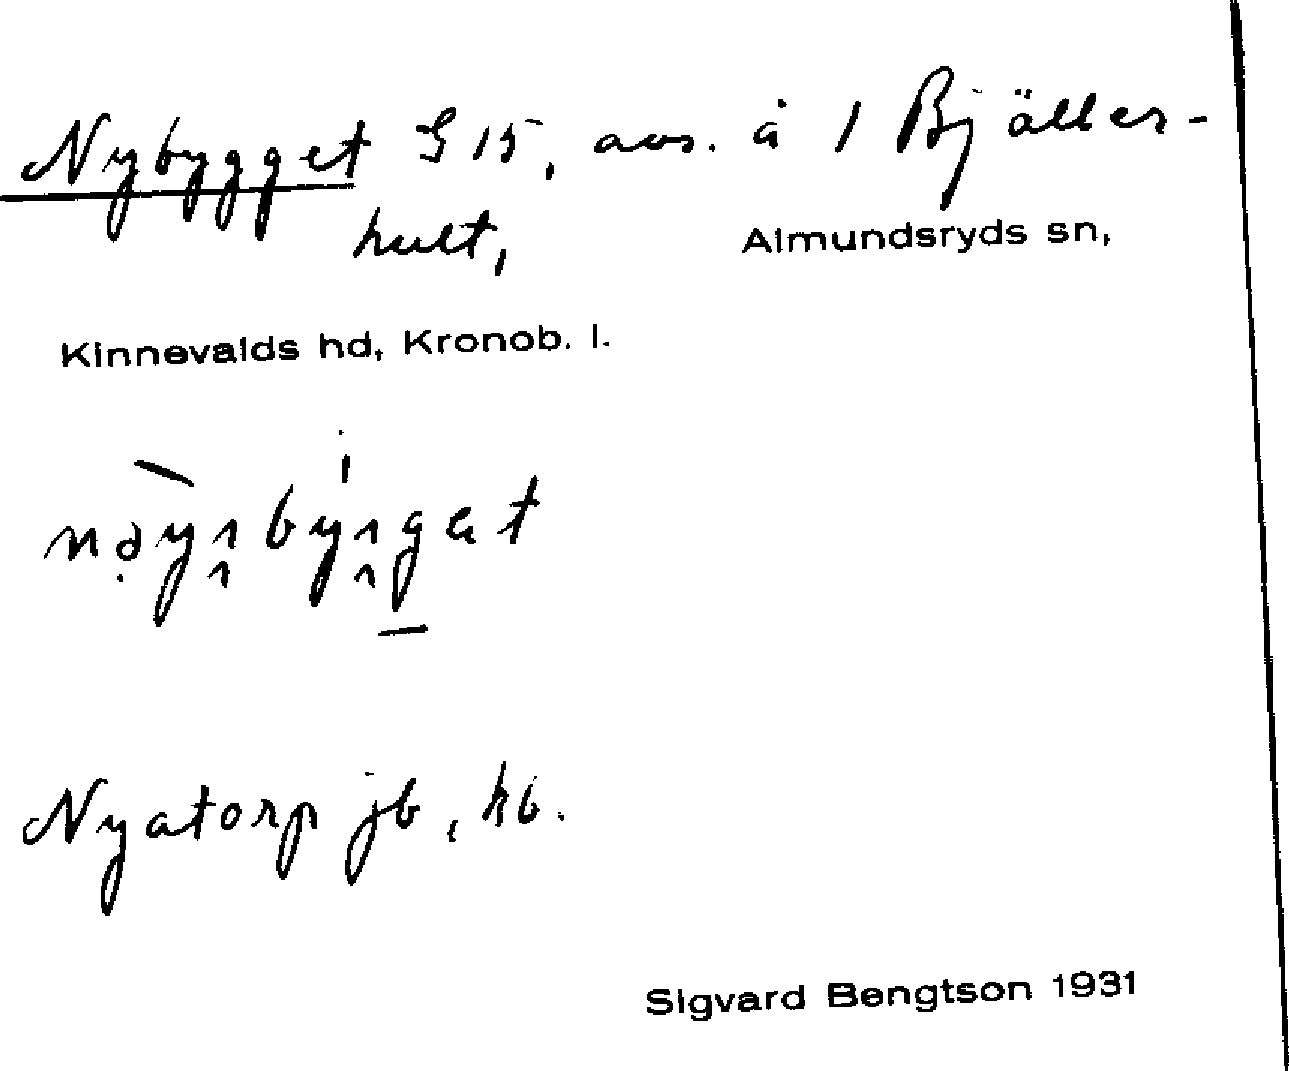 Nybygget G 15, avs. å 1 Bjäller-
hult, Almundsryds sn,
Kinnevalds hd, Kronob. l.
Nyatorp jb, kb.
Sigvard Bengtson 1931